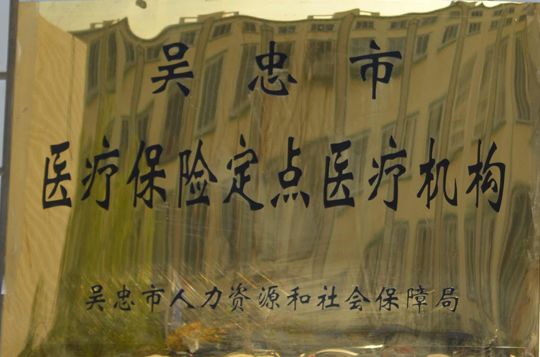 吴忠市
医疗保险定点医疗机构
吴忠市人力资源和社会保障局